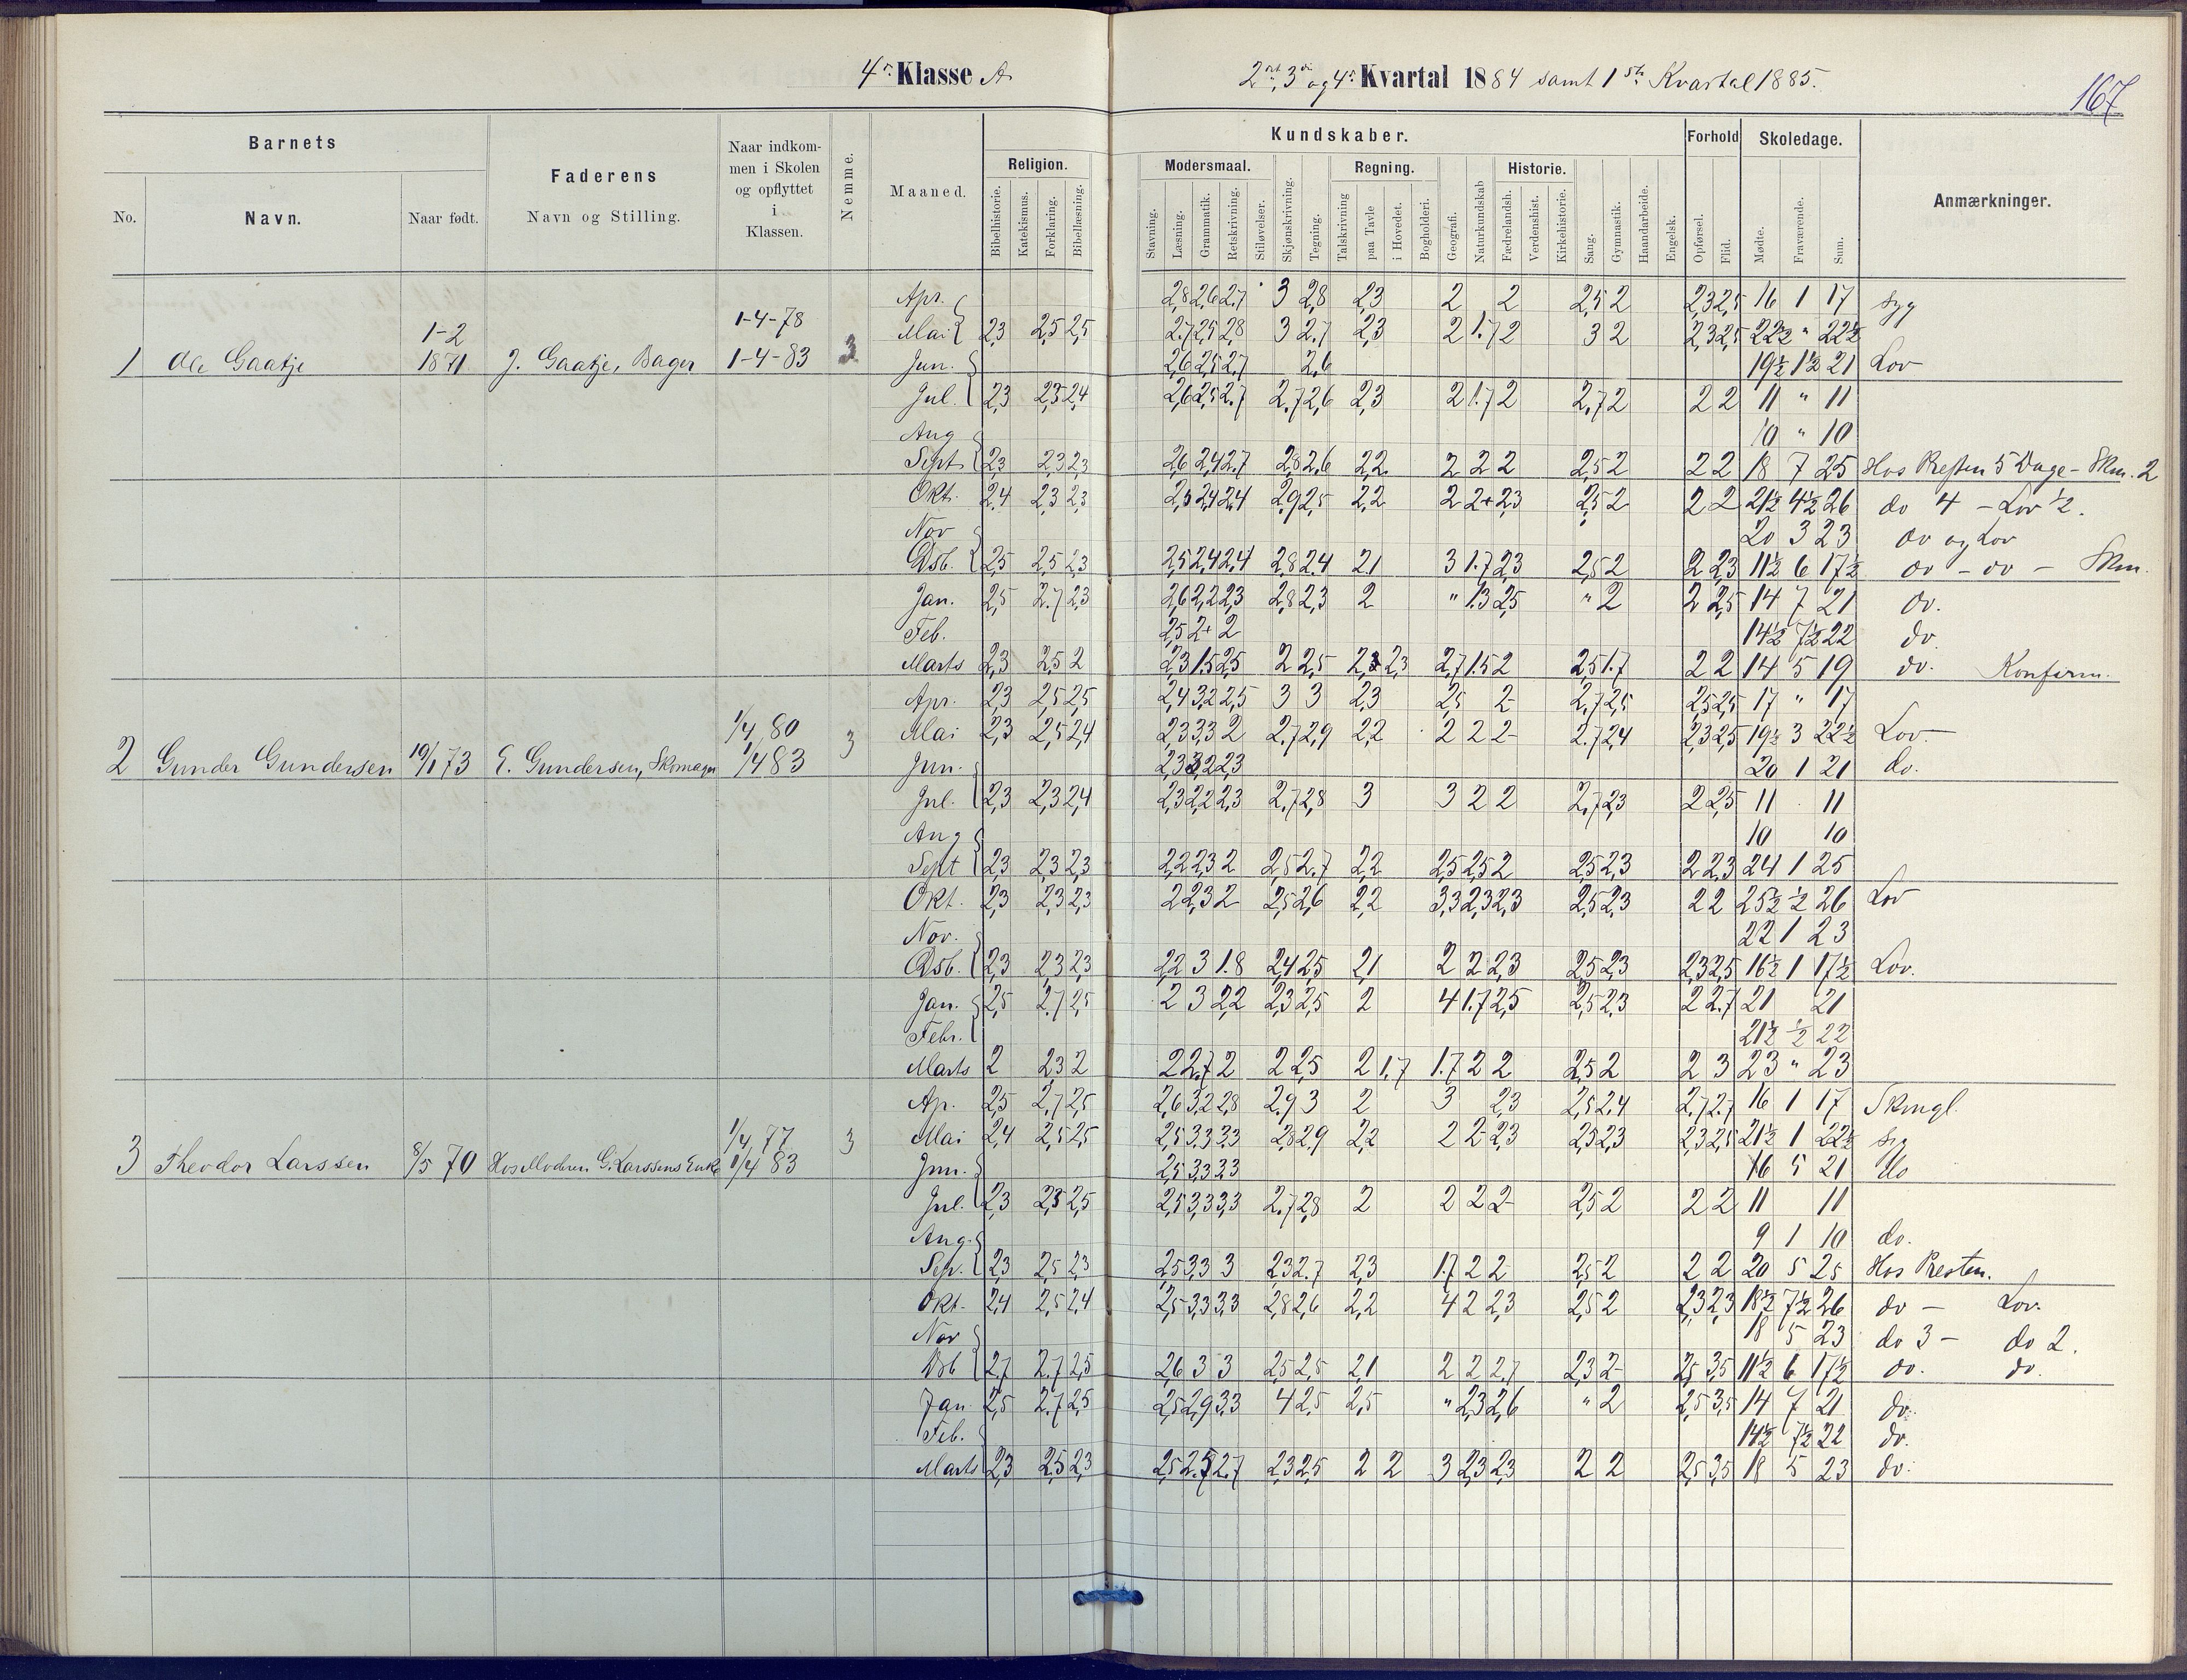 4de Klasse A.
2det, 3die og 4de Kvartal 1884 samt 1ste Kvartal 1885.
167
Barnets
No.
Navn.
Naar født.
Faderens
Navn og Stilling.
Naar indkom-
men i Skolen
og opflyttet
i
Klassen.
Nemme.
Maaned.
Kundskaber.
Religion.
Bibelhistorie.
Katekismus.
Forklaring.
Bibellæsning.
Modersmaal.
Stavning.
Læsning.
Grammatik.
Retskrivning.
Stiløvelser.
Skjønskrivning.
Tegning.
Regning.
Talskrivning
paa Tavle
i Hovedet.
Bogholderi.
Geografi.
Naturkundskab
Historie.
Fædrelandsh.
Verdenshist.
Kirkehistorie.
Sang.
Gymnastik.
Haandarbeide.
Engelsk.
Forhold
Opførsel.
Flid.
Skoledage.
Mødte.
Fraværende.
Sum.
Anmærkninger.
1 Ole Gaatje 1-2 1871 J. Gaatje, Bager 1-4-78 1-4-83 3
Apr. 2,8 2,6 2,7 3 2,8 2,3 2 2 2,5 2 2,3 2,5 16 1 17 syg
Mai 2,3 2,5 2,5 2,7 2,5 2,8 3 2,7 2,3 2 1,7 2 3 2 2,3 2,5 22½ " 22½
Jun. 2,6 2,5 2,7 2,6 19½ 1½ 21 Lov
Jul. 2,3 2,3 2,4 2,6 2,5 2,7 2,7 2,6 2,3 2 1,7 2 2,7 2 2 2 11 " 11
Aug 10 " 10
Sept 2,3 2,3 2,3 2,6 2,4 2,7 2,8 2,6 2,2 2 2 2 2,5 2 2 2 18 7 25 Hos Presten 5 Dage - Skm. 2
Okt. 2,4 2,3 2,3 2,3 2,4 2,4 2,9 2,5 2,2 2 2+ 2,3 2,5 2 2 2 21½ 4½ 26 do 4 - Lov ½.
Nov 20 3 23 do og Lov
Dsb. 2,5 2,5 2,3 2,5 2,4 2,4 2,8 2,4 2,1 3 1,7 2,3 2,5 2 2 2,3 11½ 6 17½ do - do - Skm.
Jan. 2,5 2,7 2,3 2,6 2,2 2,3 2,8 2,3 2 " 1,3 2,5 " 2 2 2,5 14 7 21 do.
Feb. 2,5 2+ 2 14½ 7½ 22 do.
Marts 2,3 2,5 2 2,3 1,5 2,5 2 2,5 2,3 2,3 2,7 1,5 2 2,5 1,7 2 2 14 5 19 do. Konfirm.
2 Gunder Gundersen 19/1 73 E. Gundersen, Skomager 1/4 80 1/4 83 3
Apr. 2,3 2,5 2,5 2,4 3,2 2,5 3 3 2,3 2,5 2- 2,7 2,5 2,5 2,5 17 " 17
Mai 2,3 2,5 2,4 2,3 3,3 2 2,7 2,9 2,2 2 2 2- 2,7 2,4 2,3 2,5 19½ 3 22½ Lov.
Jun. 2,3 3,2 2,3 20 1 21 do.
Jul. 2,3 2,3 2,4 2,3 2,2 2,3 2,7 2,8 3 3 2 2 2,7 2,3 2 2,5 11 11
Aug 10 10
Sept 2,3 2,3 2,3 2,2 2,3 2 2,5 2,7 2,2 2,5 2,5 2 2,5 2,3 2 2,3 24 1 25
Okt. 2,3 2,3 2,3 2 2,3 2 2,5 2,6 2,2 3,3 2,3 2,3 2,5 2,3 2 2 25½ ½ 26 Lov
Nov. 22 1 23
Dsb. 2,3 2,3 2,3 2,2 3 1,8 2,4 2,5 2,1 2 2 2,3 2,5 2,3 2,3 2,5 16½ 1 17½ Lov.
Jan. 2,5 2,7 2,5 2 3 2,2 2,3 2,5 2 4 1,7 2,5 2,5 2,3 2 2,7 21 21
Febr. 21½ ½ 22
Marts 2 2,3 2 2 2,7 2 2 2,5 2 1,7 1,7 2 2 2,5 2 2 3 23 " 23
3 Theodor Larssen 8/5 70 Hos Moderen G. Larssens Enke 1/4 77 1/4 83 3
Ap. 2,5 2,7 2,5 2,6 3,2 2,8 2,9 3 2 3 2,3 2,5 2,4 2,7 2,7 16 1 17 Skmgl.
Mai 2,4 2,5 2,5 2,5 3,3 3,3 2,8 2,9 2,2 2 2- 2,3 2,5 2,3 2,3 2,5 21½ 1 22½ syg
Jun. 2,5 3,3 3,3 16 5 21 do
Jul. 2,3 2,3 2,5 2,5 3,3 3,3 2,7 2,8 2 2 2 2- 2,5 2 2 2 11 11
Aug. 9 1 10 do.
Sep. 2,3 2,5 2,3 2,5 3,3 3 2,3 2,7 2,3 1,7 2 2- 2,5 2 2 2 20 5 25 Hos Presten.
Okt. 2,4 2,5 2,4 2,5 3,3 3,3 2,8 2,6 2,2 4 2 2,3 2,5 2 2,3 2,3 18½ 7½ 26 do - Lov.
Nov 18 5 23 do 3 - do 2.
Dsb 2,7 2,7 2,5 2,6 3 3 2,5 2,5 2,1 2 2 2,7 2,3 2- 2,5 3,5 11½ 6 17½ do. do.
Jan. 2,5 2,7 2,5 2,5 2,9 3,3 4 2,5 2,5 " 2,3 2,6 " 2 2,5 3,5 14 7 21 do.
Feb. 14½ 7½ 22 do.
Marts 2,3 2,5 2,3 2,5 2,7 2,3 2,5 2 2 3 2,3 2,3 2 2 2,5 3,5 18 5 23 do.